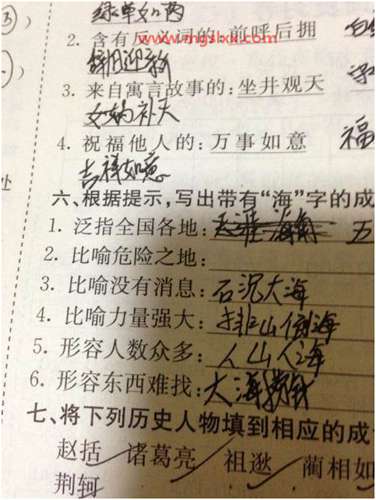 绿草如茵
2. 含有反义词的: 前呼后拥
www.mgslxx.com
辞旧迎新
3. 来自寓言故事的: 坐井观天
女娲补天
4. 祝福他人的: 万事如意 福
吉祥如意
处
六、根据提示, 写出带有“海”字的成
1. 泛指全国各地: 天涯海角 五
2. 比喻危险之地:
3. 比喻没有消息: 石沉大海
4. 比喻力量强大: 排山倒海
5. 形容人数众多: 人山人海
6. 形容东西难找: 大海捞针
七、将下列历史人物填到相应的成
赵括 诸葛亮 祖逖 蔺相如
荆轲